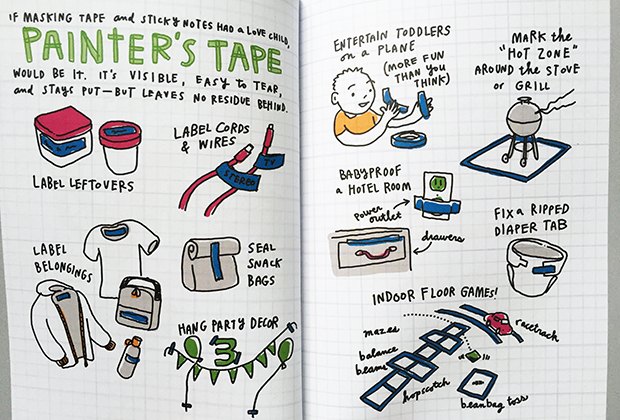 IF MASKING TAPE and STICKY NOTES HAD a LOVE CHILD,
PAINTER'S TAPE
WOULD BE IT. IT'S VISIBLE, EASY to TEAR,
and STAYS PUT—BUT LEAVES NO RESIDUE BEHIND.
LABEL LEFTOVERS
LABEL CORDS
& WIRES
STEREO
TV
LABEL
BELONGINGS
SEAL
SNACK
BAGS
HANG PARTY DECOR
3
ENTERTAIN TODDLERS
on a PLANE
(MORE FUN
THAN YOU
THINK)
MARK the
"HOT ZONE"
AROUND the STOVE
or GRILL
BABYPROOF
a HOTEL ROOM
power
outlet
drawers
FIX a RIPPED
DIAPER TAB
INDOOR FLOOR GAMES!
mazes
racetrack
balance
beams
hopscotch
beanbag toss